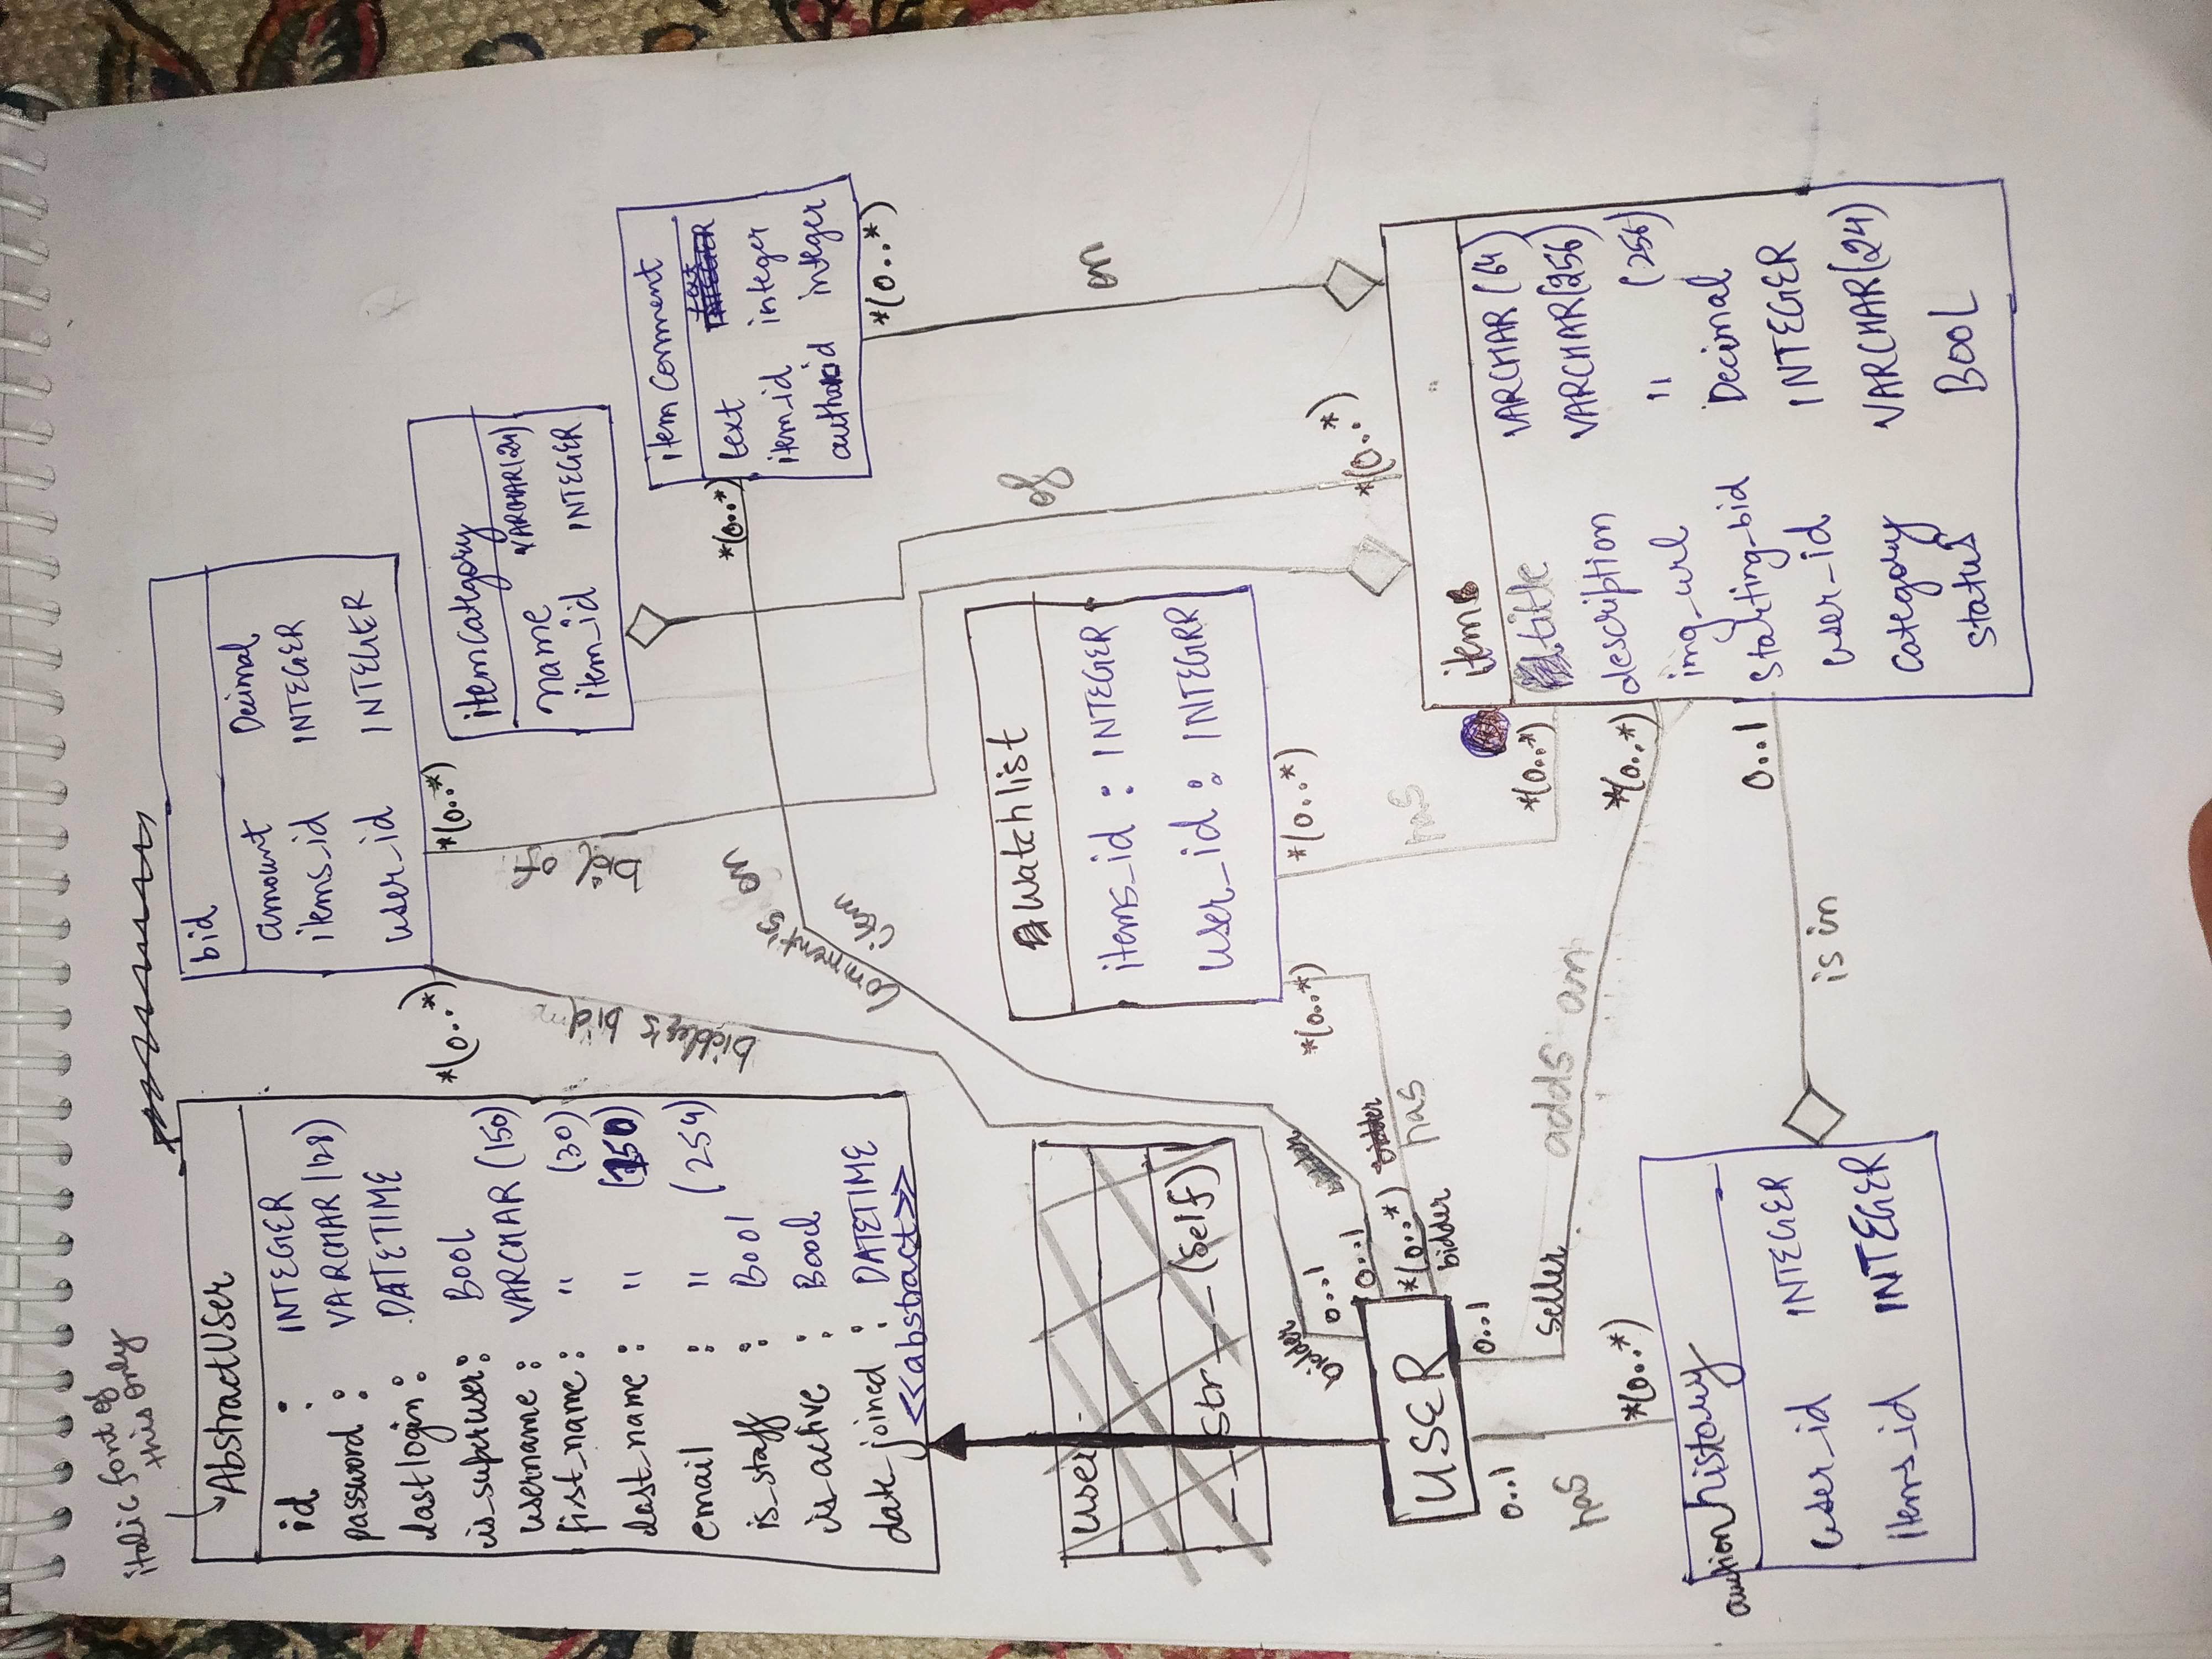 italic font of
this only
AbstractUser
id : INTEGER
password : VARCHAR (128)
last login : DATETIME
is_superuser : BOOL
username : VARCHAR (150)
first_name : " (30)
last_name : " (150)
email : " (254)
is_staff : Bool
is_active : Bool
date_joined : DATETIME
<<abstract>>
bid
amount Decimal
items_id INTEGER
user_id INTEGER
*(0..*)
*(0..*)
bidder's bid
bid of
itemcategory
name VARCHAR(24)
item_id INTEGER
item Comment
text text
item_id integer
authorid integer
*(0..*)
*(0..*)
Comment's on
item
of
on
user
__str__(self)
Watchlist
items_id : INTEGER
user_id : INTEGRR
*(0..*)
*(0..*)
bidder
0..1
0..1
*(0..*) bidder
bidder
has
has
USER
0..1
0..1
has
seller
adds an
*(0..*)
*(0..*)
*(0..*)
*(0..*)
item
title VARCHAR (64)
description VARCHAR(256)
img_url " (256)
starting_bid Decimal
user_id INTEGER
category VARCHAR(24)
status BOOL
auctionhistory
user_id INTEGER
items_id INTEGER
is in
0..1